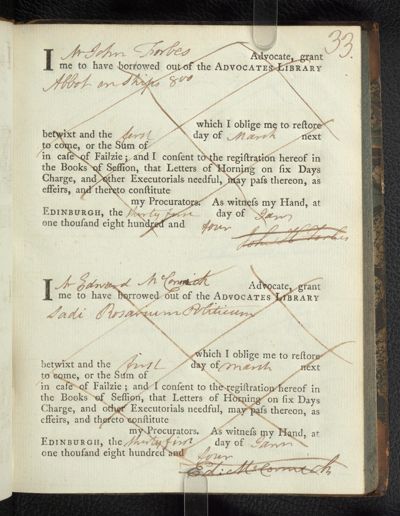 33.
I Mr John Forbes Advocate, grant
me to have borrowed out of the ADVOCATES LIBRARY
Abbot on Ships 8vo
which I oblige me to restore
betwixt and the first day of March next
to come, or the Sum of
in case of Failzie; and I consent to the registration hereof in
the Books of Session, that Letters of Horning on six Days
Charge, and other Executorials needful, may pass thereon, as
effeirs, and thereto constitute
my Procurators. As witness my Hand, at
EDINBURGH, the thirty first day of Jany
one thousand eight hundred and four
John H Forbes
I Mr Edward McCormick Advocate, grant
me to have borrowed out of the ADVOCATES LIBRARY
Sadi Rosarium Politicum
which I oblige me to restore
betwixt and the first day of March next
to come, or the Sum of
in case of Failzie; and I consent to the registration hereof in
the Books of Session, that Letters of Horning on six Days
Charge, and other Executorials needful, may pass thereon, as
effeirs, and thereto constitute
my Procurators. As witness my Hand, at
EDINBURGH, the thirty first day of Jany
one thousand eight hundred and four
Edw McCormick